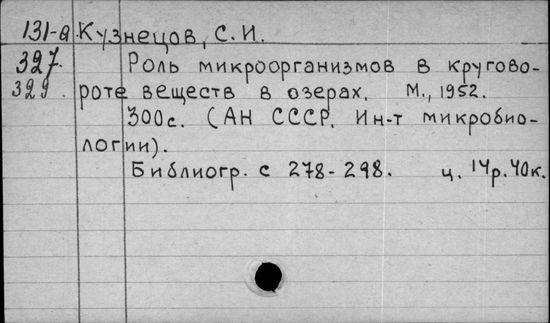 131-а Кузнецов, С. И.
327. Роль микроорганизмов в кругово-
329. роте веществ в озерах. М., 1952.
300с. (АН СССР. Ин-т микробио-
логии).
Библиогр. с 278-298. ц. 14р.40к.